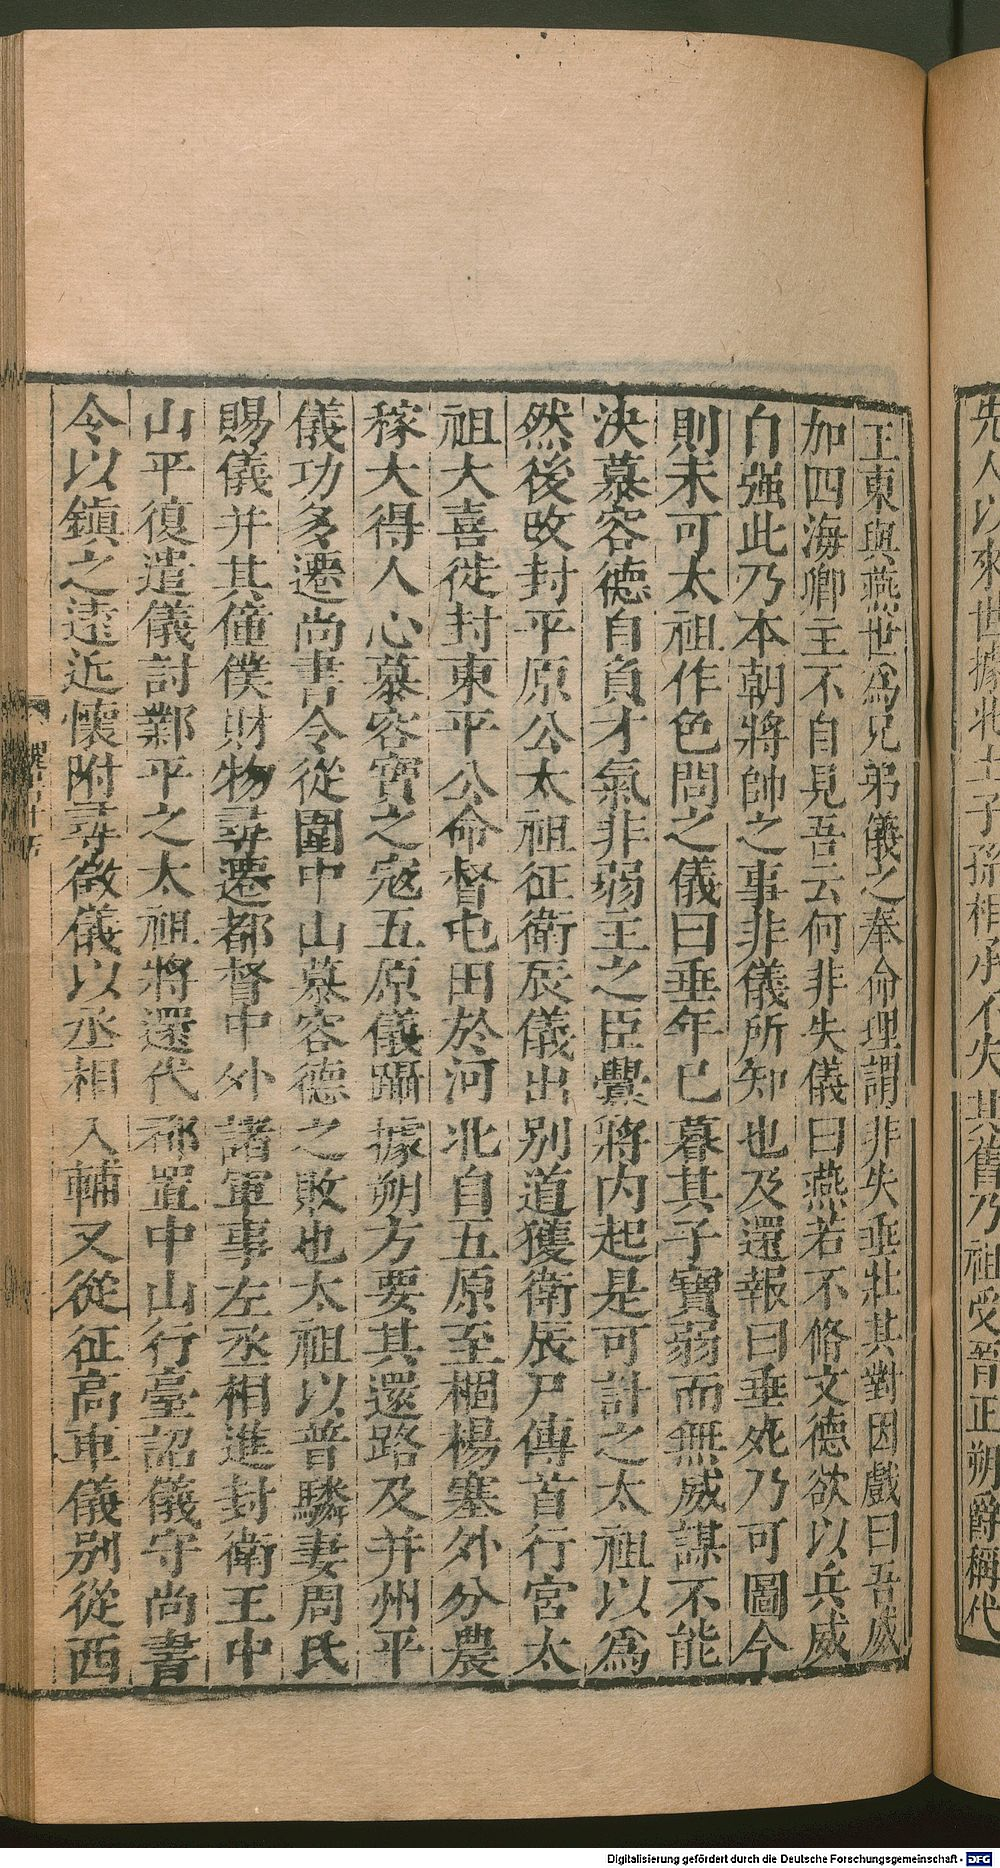 先人以來世據北土子孫相承不失其舊乃祖受晉正朔爵稱代
王東與燕世爲兄弟儀之奉命理謂非失垂壯其對因戲曰吾威
加四海卿主不自見吾云何非失儀曰燕若不脩文德欲以兵威
自强此乃本朝將帥之事非儀所知也及還報曰垂死乃可圖今
則未可太祖作色問之儀曰垂年已暮其子寶弱而無威謀不能
決慕容德自負才氣非弱主之臣釁將内起是可計之太祖以爲
然後改封平原公太祖征衛辰儀出别道獲衛辰尸傳首行宮太
祖大喜徙封東平公命督屯田於河北自五原至棝楊塞外分農
稼大得人心慕容寶之寇五原儀躡據朔方要其還路及并州平
儀功多遷尚書令從圍中山慕容德之敗也太祖以普驎妻周氏
賜儀并其僮僕財物尋遷都督中外諸軍事左丞相進封衛王中
山平復遣儀討鄴平之太祖將還代都置中山行臺詔儀守尚書
令以鎮之遠近懷附尋徵儀以丞相入輔又從征高車儀别從西
Digitalisierung gefördert durch die Deutsche Forschungsgemeinschaft - DFG